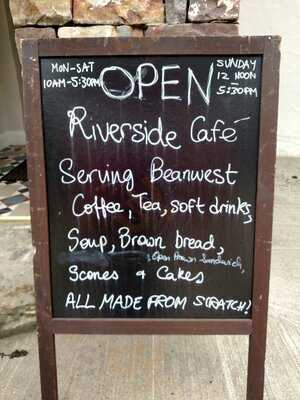 MON-SAT
10AM-5:30PM
OPEN
SUNDAY
12 NOON
-
5:30PM
Riverside Café
Serving Beanwest
Coffee, Tea, soft drinks,
Soup, Brown bread,
, Open Brown Sandwich,
Scones & Cakes
ALL MADE FROM SCRATCH!